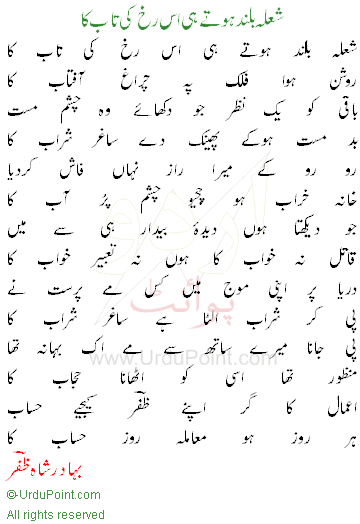 شعلہ بلند ہوتے ہی اس رخ کی تاب کا
شعلہ بلند ہوتے ہی اس رخ کی تاب کا
روشن ہوا فلک پہ چراغ آفتاب کا
باقی کو یک نظر جو دکھائے وہ چشم مست
بد مست ہوکے پھینک دے ساغر شراب کا
رو رو کے میرا راز نہاں فاش کردیا
خانہ خراب ہو چیو چشم پر آب کا
جو دیکھتا ہوں دیدۂ بیدار ہی سے میں
قاتل نہ خواب کا ہوں نہ تعبیر خواب کا
دریا پر اپنی موج میں کس مے پرست نے
پی کر شراب الٹا ہے ساغر شراب کا
پی جانا میرے ساتھ سے مے اک بہانہ تھا
منظور تھا اسی کو اٹھانا حجاب کا
اعمال کا گر اپنے ظفرؔ کیجیے حساب
ہر روز ہو معاملہ روز حساب کا
بہادر شاہ ظفرؔ
اردو پوائنٹ
www.UrduPoint.com
©UrduPoint.com
All rights reserved